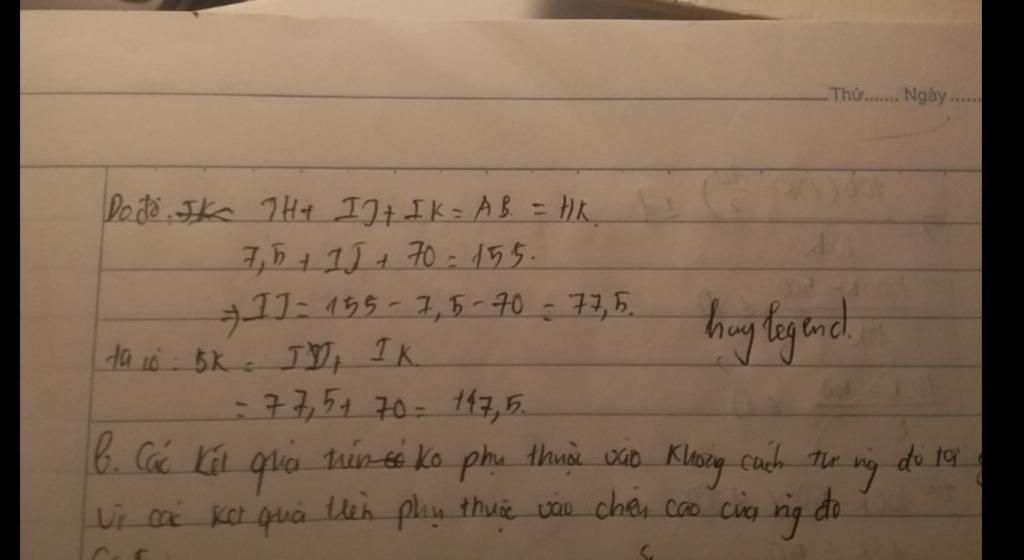 Thứ....... Ngày......
Do đó: JH + IJ + IK = AB = HK.
7,5 + IJ + 70 = 155.
⇒ IJ = 155 - 7,5 - 70 = 77,5.
hay legend.
ta có: JK = IJ + IK.
= 77,5 + 70 = 147,5.
b. Các kết quả trên ko phụ thuộc vào khoảng cách từ ng đó tới
Vì các kết quả trên phụ thuộc vào chiều cao của ng đó